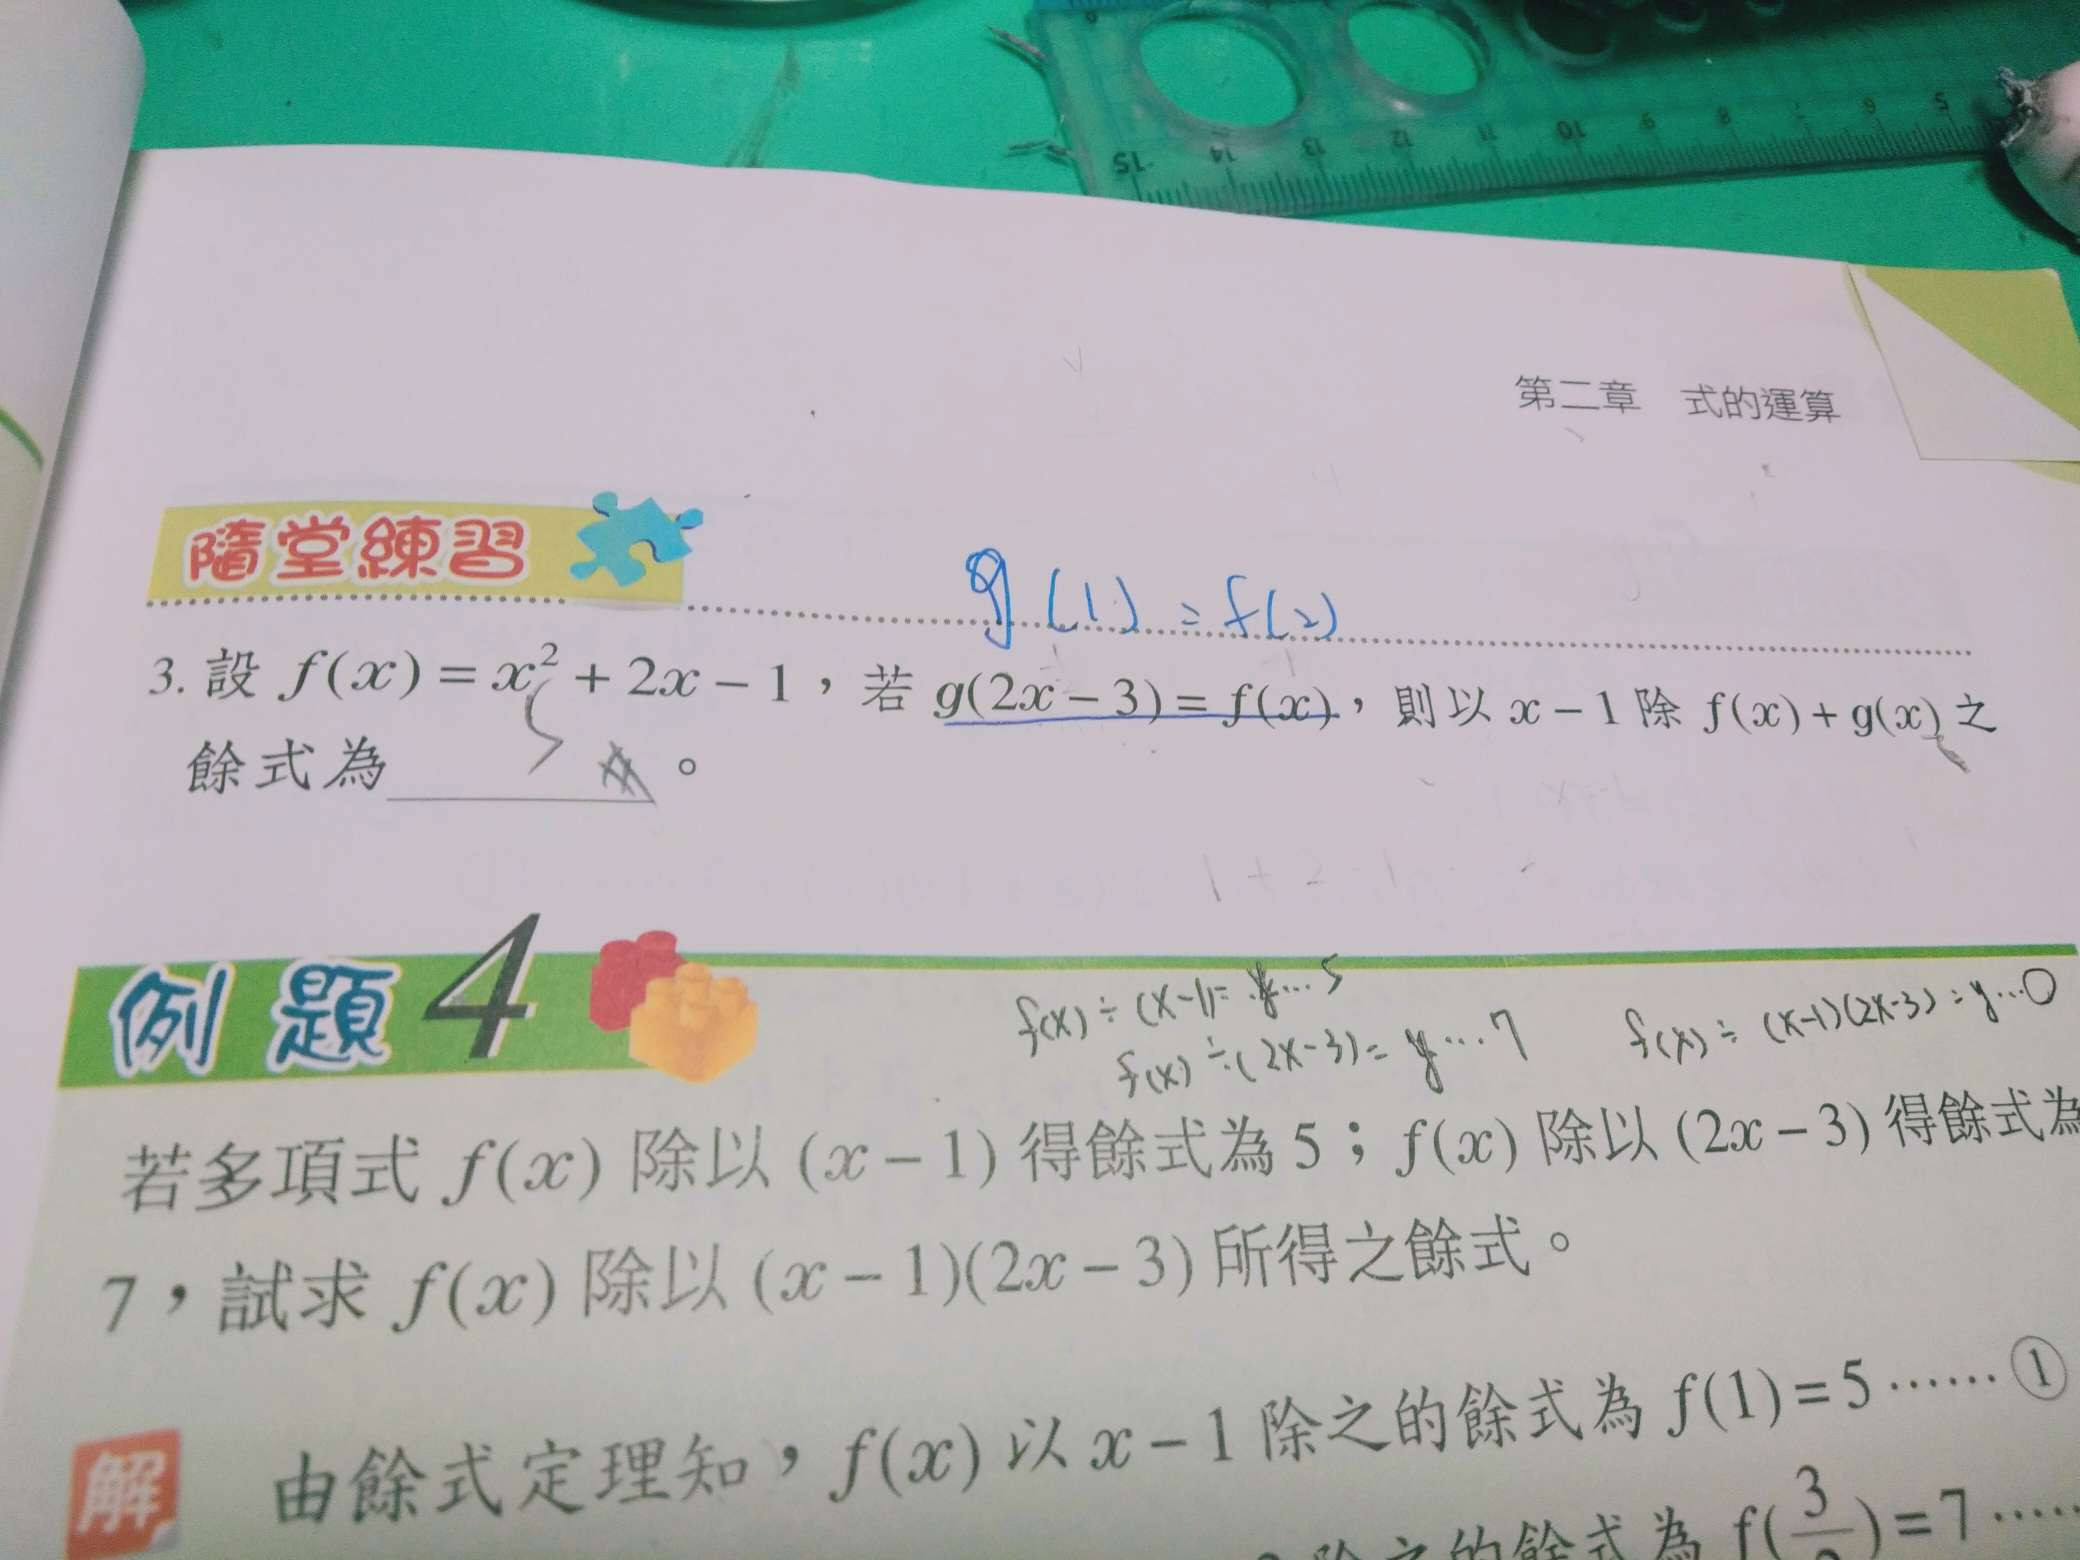 15 14 13 12 11 10 9 8 7 6 5
第二章 式的運算
隨堂練習
g(1) = f(2)
3. 設 f(x) = x² + 2x − 1，若 g(2x − 3) = f(x)，則以 x − 1 除 f(x) + g(x) 之
餘式為 。
例題 4
f(x) ÷ (x-1) = y … 5
f(x) ÷ (2x-3) = y … 7
f(x) ÷ (x-1)(2x-3) = y … 0
若多項式 f(x) 除以 (x − 1) 得餘式為 5；f(x) 除以 (2x − 3) 得餘式為
7，試求 f(x) 除以 (x − 1)(2x − 3) 所得之餘式。
解 由餘式定理知，f(x) 以 x − 1 除之的餘式為 f(1) = 5 …… ①
除之的餘式為 f(3/2) = 7 ……